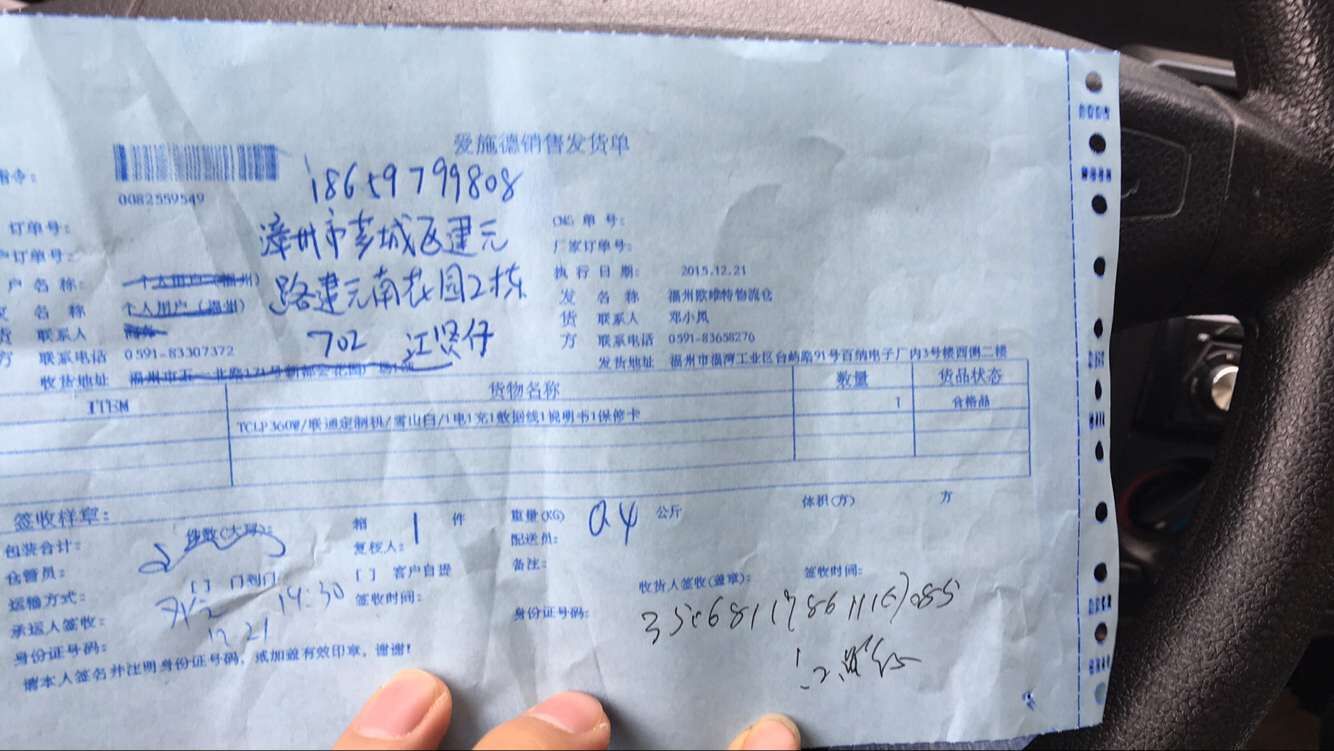 爱施德销售发货单
指令:
0082559549
18659799808
订单号:
漳州市芗城区建元
CMS 单 号:
户订单号:
厂家订单号:
户 名 称: 个人用户(福州)
路建元南花园2栋
执 行 日 期: 2015.12.21
名 称 个人用户(福州)
发 名 称 福州欧唯特物流仓
货 联系人
702 江贤仔
货 联系人 邓小凤
方 联系电话 0591-83307372
方 联系电话 0591-83658276
收货地址
发货地址 福州市福湾工业区台屿路91号百纳电子厂内3号楼西侧二楼
ITEM 货物名称 数量 货品状态
TCLP360W/联通定制机/雪山白/1电1充1数据线1说明书1保修卡 1 合格品
签收样章:
包装合计: 件数(大写): 箱 1 件 重量(KG) 0.4 公斤 体积(方) 方
仓管员: 复核人: 配送员:
运输方式: [ ] 门到门 [ ] 客户自提 备注:
承运人签收: 19:30 签收时间: 收货人签收(盖章): 签收时间:
12.21
身份证号码: 身份证号码:
请本人签名并注明身份证号码,或加盖有效印章,谢谢!